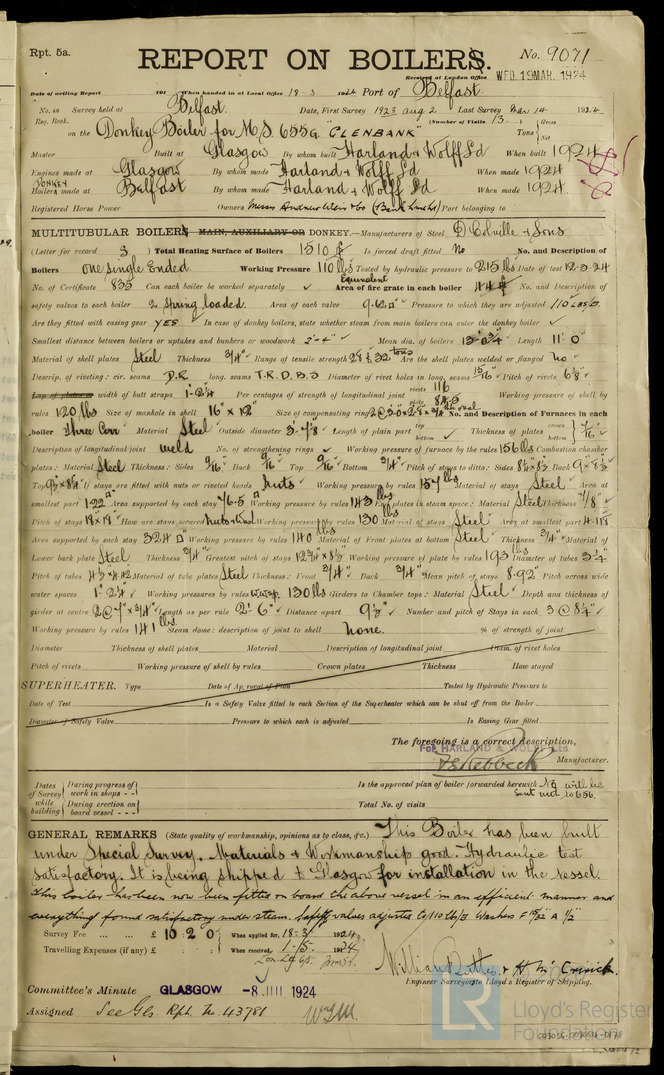 Rpt. 5a.
REPORT ON BOILERS.
No. 9071
Received at London Office WED. 19 MAR. 1924
Date of writing Report 191 When handed in at Local Office 18-3 1924 Port of Belfast
No. in Survey held at Belfast Date, First Survey 1923 Aug 2 Last Survey Mar 14 1924
Reg. Book. (Number of Visits 13)
on the Donkey Boiler for MS 655G "GLENBANK" Tons Gross Net
Master Built at Glasgow By whom built Harland & Wolff Ld When built 1924
Engines made at Glasgow By whom made Harland & Wolff Ld When made 1924
DONKEY Boilers made at Belfast By whom made Harland & Wolff Ld When made 1924
Registered Horse Power Owners Messrs Andrew Weir & Co (Bank Line Ld) Port belonging to
MULTITUBULAR BOILERS MAIN, AUXILIARY OR DONKEY.—Manufacturers of Steel D Colville & Sons
(Letter for record S) Total Heating Surface of Boilers 1510 Is forced draft fitted No No. and Description of
Boilers One Single Ended Working Pressure 110 lbs Tested by hydraulic pressure to 215 lbs Date of test 12-3-24
No. of Certificate 835 Can each boiler be worked separately ✓ Equivalent Area of fire grate in each boiler 44 No. and Description of
safety valves to each boiler 2 Spring loaded Area of each valve 9.62 Pressure to which they are adjusted 110 lbs
Are they fitted with easing gear YES ✓ In case of donkey boilers, state whether steam from main boilers can enter the donkey boiler ✓
Smallest distance between boilers or uptakes and bunkers or woodwork 2'-4" ✓ Mean dia. of boilers 13'-0 3/4" Length 11'-0"
Material of shell plates Steel Thickness 3/4" Range of tensile strength 28 & 32 tons Are the shell plates welded or flanged No
Descrip. of riveting: cir. seams D.R. long. seams T.R.D.B.S Diameter of rivet holes in long. seams 15/16" Pitch of rivets 6 5/8"
Lap of plates or width of butt straps 1'-2 1/4" Per centages of strength of longitudinal joint rivets 116 plate 84.5 Working pressure of shell by
rules 120 lbs Size of manhole in shell 16" x 12" Size of compensating ring No. and Description of Furnaces in each
boiler Three Corr Material Steel Outside diameter 3'-7 1/8" Length of plain part top bottom ✓ Thickness of plates crown bottom 7/16"
Description of longitudinal joint weld No. of strengthening rings ✓ Working pressure of furnace by the rules 156 lbs Combustion chamber
plates: Material Steel Thickness: Sides 9/16" Back 9/16" Top 9/16" Bottom 3/4" Pitch of stays to ditto: Sides 8 1/2 x 8 1/2 Back 9 x 8 1/2
Top 9 1/2 x 8 1/4 If stays are fitted with nuts or riveted heads Nuts ✓ Working pressure by rules 157 lbs Material of stays Steel Area at
smallest part 1.22 Area supported by each stay 76.5 Working pressure by rules 143 lbs End plates in steam space: Material Steel Thickness 7/8"
Pitch of stays 18" x 18" How are stays secured Nuts & Wash Working pressure by rules 130 Material of stays Steel Area at smallest part 4.18
Area supported by each stay 324 Working pressure by rules 140 lbs Material of Front plates at bottom Steel Thickness 3/4" Material of
Lower back plate Steel Thickness 3/4" Greatest pitch of stays 12 3/4" x 8 1/2" Working pressure of plate by rules 193 lbs Diameter of tubes 3 1/4"
Pitch of tubes 4 1/2 x 4 1/2 Material of tube plates Steel Thickness: Front 3/4" Back 3/4" Mean pitch of stays 8.92 Pitch across wide
water spaces 1'-2 1/4" ✓ Working pressures by rules 130 lbs Girders to Chamber tops: Material Steel Depth and thickness of
girder at centre 2 @ 7" x 3/4" Length as per rule 2'-6" Distance apart 9 1/2" Number and pitch of Stays in each 3 @ 8 1/4"
Working pressure by rules 141 lbs Steam dome: description of joint to shell None. % of strength of joint
Diameter Thickness of shell plates Material Description of longitudinal joint Diam. of rivet holes
Pitch of rivets Working pressure of shell by rules Crown plates Thickness How stayed
SUPERHEATER. Type Date of Approval of Plan Tested by Hydraulic Pressure to
Date of Test Is a Safety Valve fitted to each Section of the Superheater which can be shut off from the Boiler
Diameter of Safety Valve Pressure to which each is adjusted Is Easing Gear fitted
The foregoing is a correct description,
For HARLAND & WOLFF Ltd
F E Rebbeck Manufacturer.
Dates of Survey while building During progress of work in shops - - Is the approved plan of boiler forwarded herewith No will be sent with No 656.
During erection on board vessel - - - Total No. of visits
GENERAL REMARKS (State quality of workmanship, opinions as to class, &c.) This Boiler has been built
under Special Survey. Materials & Workmanship good. Hydraulic test
satisfactory. It is being shipped to Glasgow for installation in the vessel.
This boiler has been now been fitted on board the above vessel in an efficient manner and
everything found satisfactory under steam. Safety valves adjusted to 110 lbs Washers F 9/32" A 1/2"
Survey Fee ... ... £ 10 : 2 : 0 When applied for, 18-3 1924
Travelling Expenses (if any) £ : : When received, 1-5- 1924
William Butler & H. M. Cruick.
Engineer Surveyors to Lloyd's Register of Shipping.
Committee's Minute GLASGOW -8 JUL 1924
Assigned See Gls. Rpt No. 43781
LR Lloyd's Register Foundation
003056-003056-0178